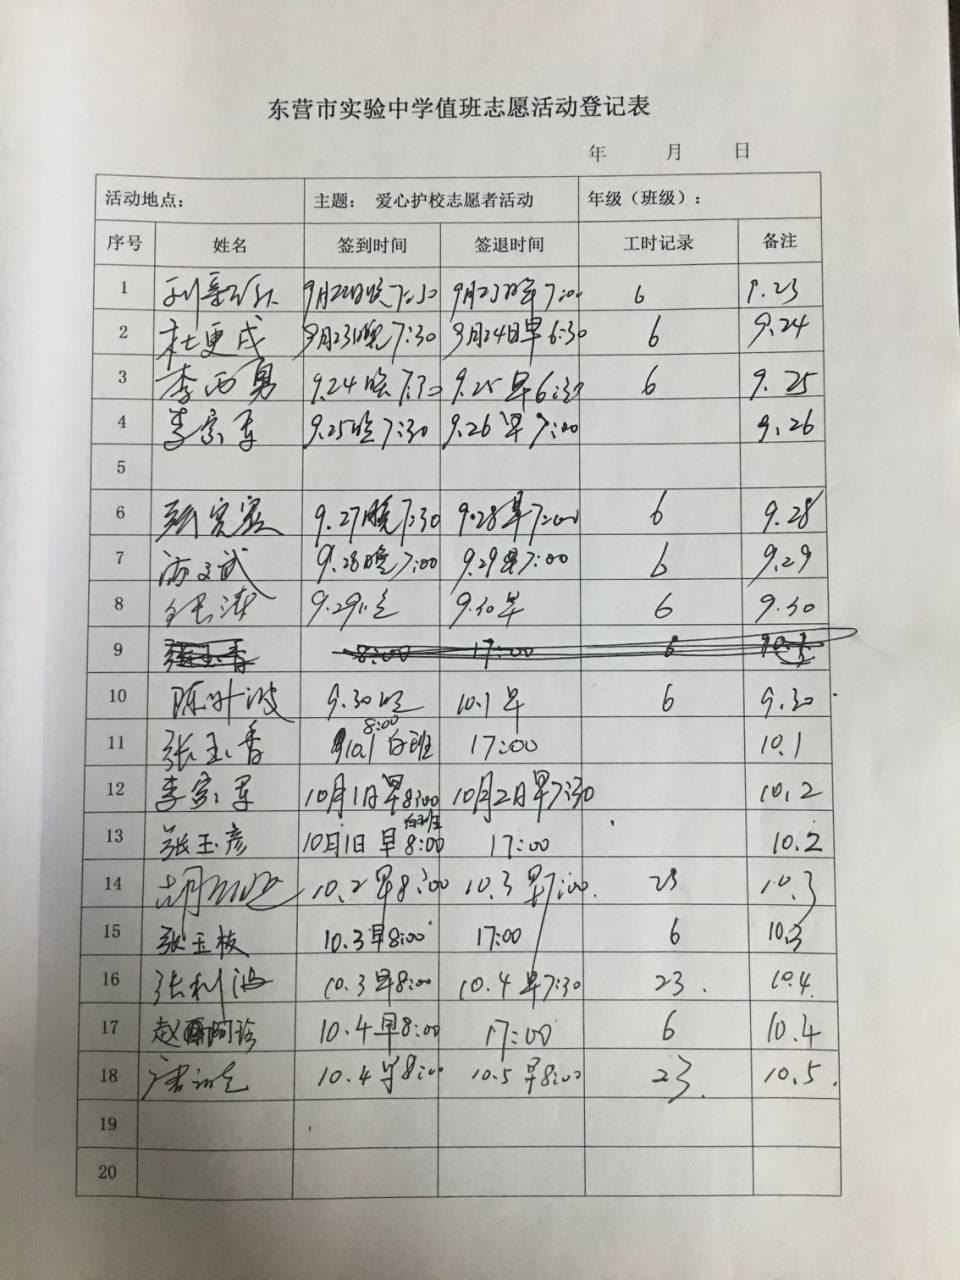 东营市实验中学值班志愿活动登记表
年 月 日
活动地点： 主题： 爱心护校志愿者活动 年级（班级）：
序号 姓名 签到时间 签退时间 工时记录 备注
1 9月22日晚7:30 9月23日早7:00 6 9.23
2 杜更成 9月23日晚7:30 9月24日早6:30 6 9.24
3 李西勇 9.24晚7:30 9.25早6:30 6 9.25
4 李宗军 9.25晚7:30 9.26早7:00 9.26
5
6 9.27晚7:30 9.28早7:00 6 9.28
7 9.28晚7:00 9.29早7:00 6 9.29
8 9.29晚 9.30早 6 9.30
9 张玉香 8:00 17:00 6
10 陈叶波 9.30晚 10.1早 6 9.30
11 张玉香 10.1白班8:00 17:00 10.1
12 李宗军 10月1日早8:00 10月2日早7:30 10.2
13 张玉彦 10月1日早8:00白班 17:00 10.2
14 10.2早8:00 10.3早7:00. 23 10.3
15 张玉枝 10.3早8:00 17:00 6 10.3
16 张利波 10.3早8:00 10.4早7:30 23. 10.4
17 10.4早8:00 17:00 6 10.4
18 10.4早8:00 10.5早8:00 23. 10.5.
19
20